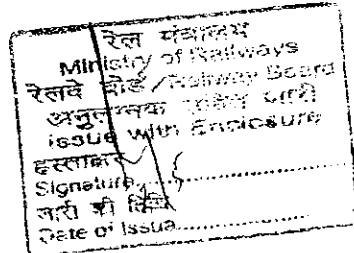 रेल मंत्रालय
Ministry of Railways
रेलवे बोर्ड/Railway Board
अनुलग्नक सहित जारी
issue with Enclosure
हस्ताक्षर
Signature..................
जारी की तिथि
Date of Issue..................